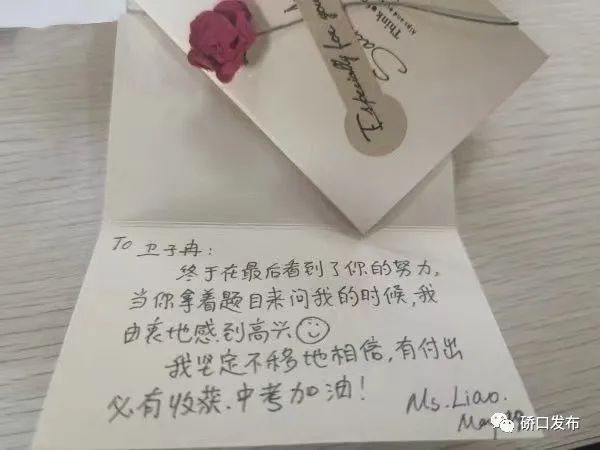 Especially for you
Think
To 卫子冉:
终于在最后看到了你的努力,
当你拿着题目来问我的时候,我
由衷地感到高兴
我坚定不移地相信,有付出
必有收获.中考加油!
Ms.Liao.
硚口发布